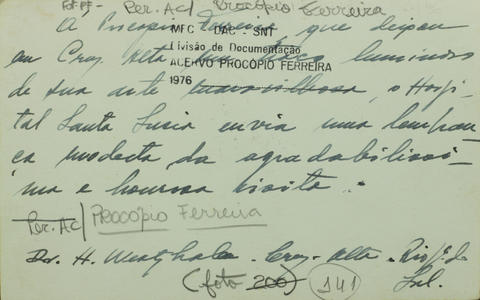 Per. Ac/ Procópio Ferreira
A Procopio Ferreira que deixou
MEC - DAC - SNT
em Cruz Alta luminoso
Divisão de Documentação
ACERVO PROCÓPIO FERREIRA
de sua arte maravilhosa, o Hospi-
1976
tal Santa Lucia envia uma lembran-
ça modesta da agradabilissi-
ma e honrosa visita.
Per. Ac/ Procópio Ferreira
Dr. H. Westphalen. Cruz-Alta - Rio G. do
Sul.
(foto 200) 141